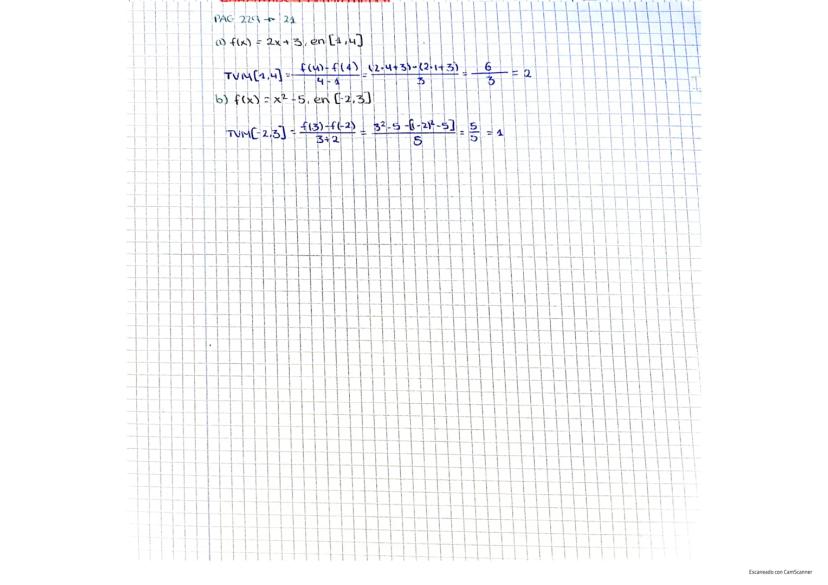 PAG 224 → 21
a) f(x) = 2x + 3, en [1,4]
TVM[1,4] = f(4) - f(1) / 4 - 1 = (2·4+3) - (2·1+3) / 3 = 6 / 3 = 2
b) f(x) = x² - 5, en [-2,3]
TVM[-2,3] = f(3) - f(-2) / 3+2 = 3² - 5 - [(-2)² - 5] / 5 = 5 / 5 = 1
Escaneado con CamScanner